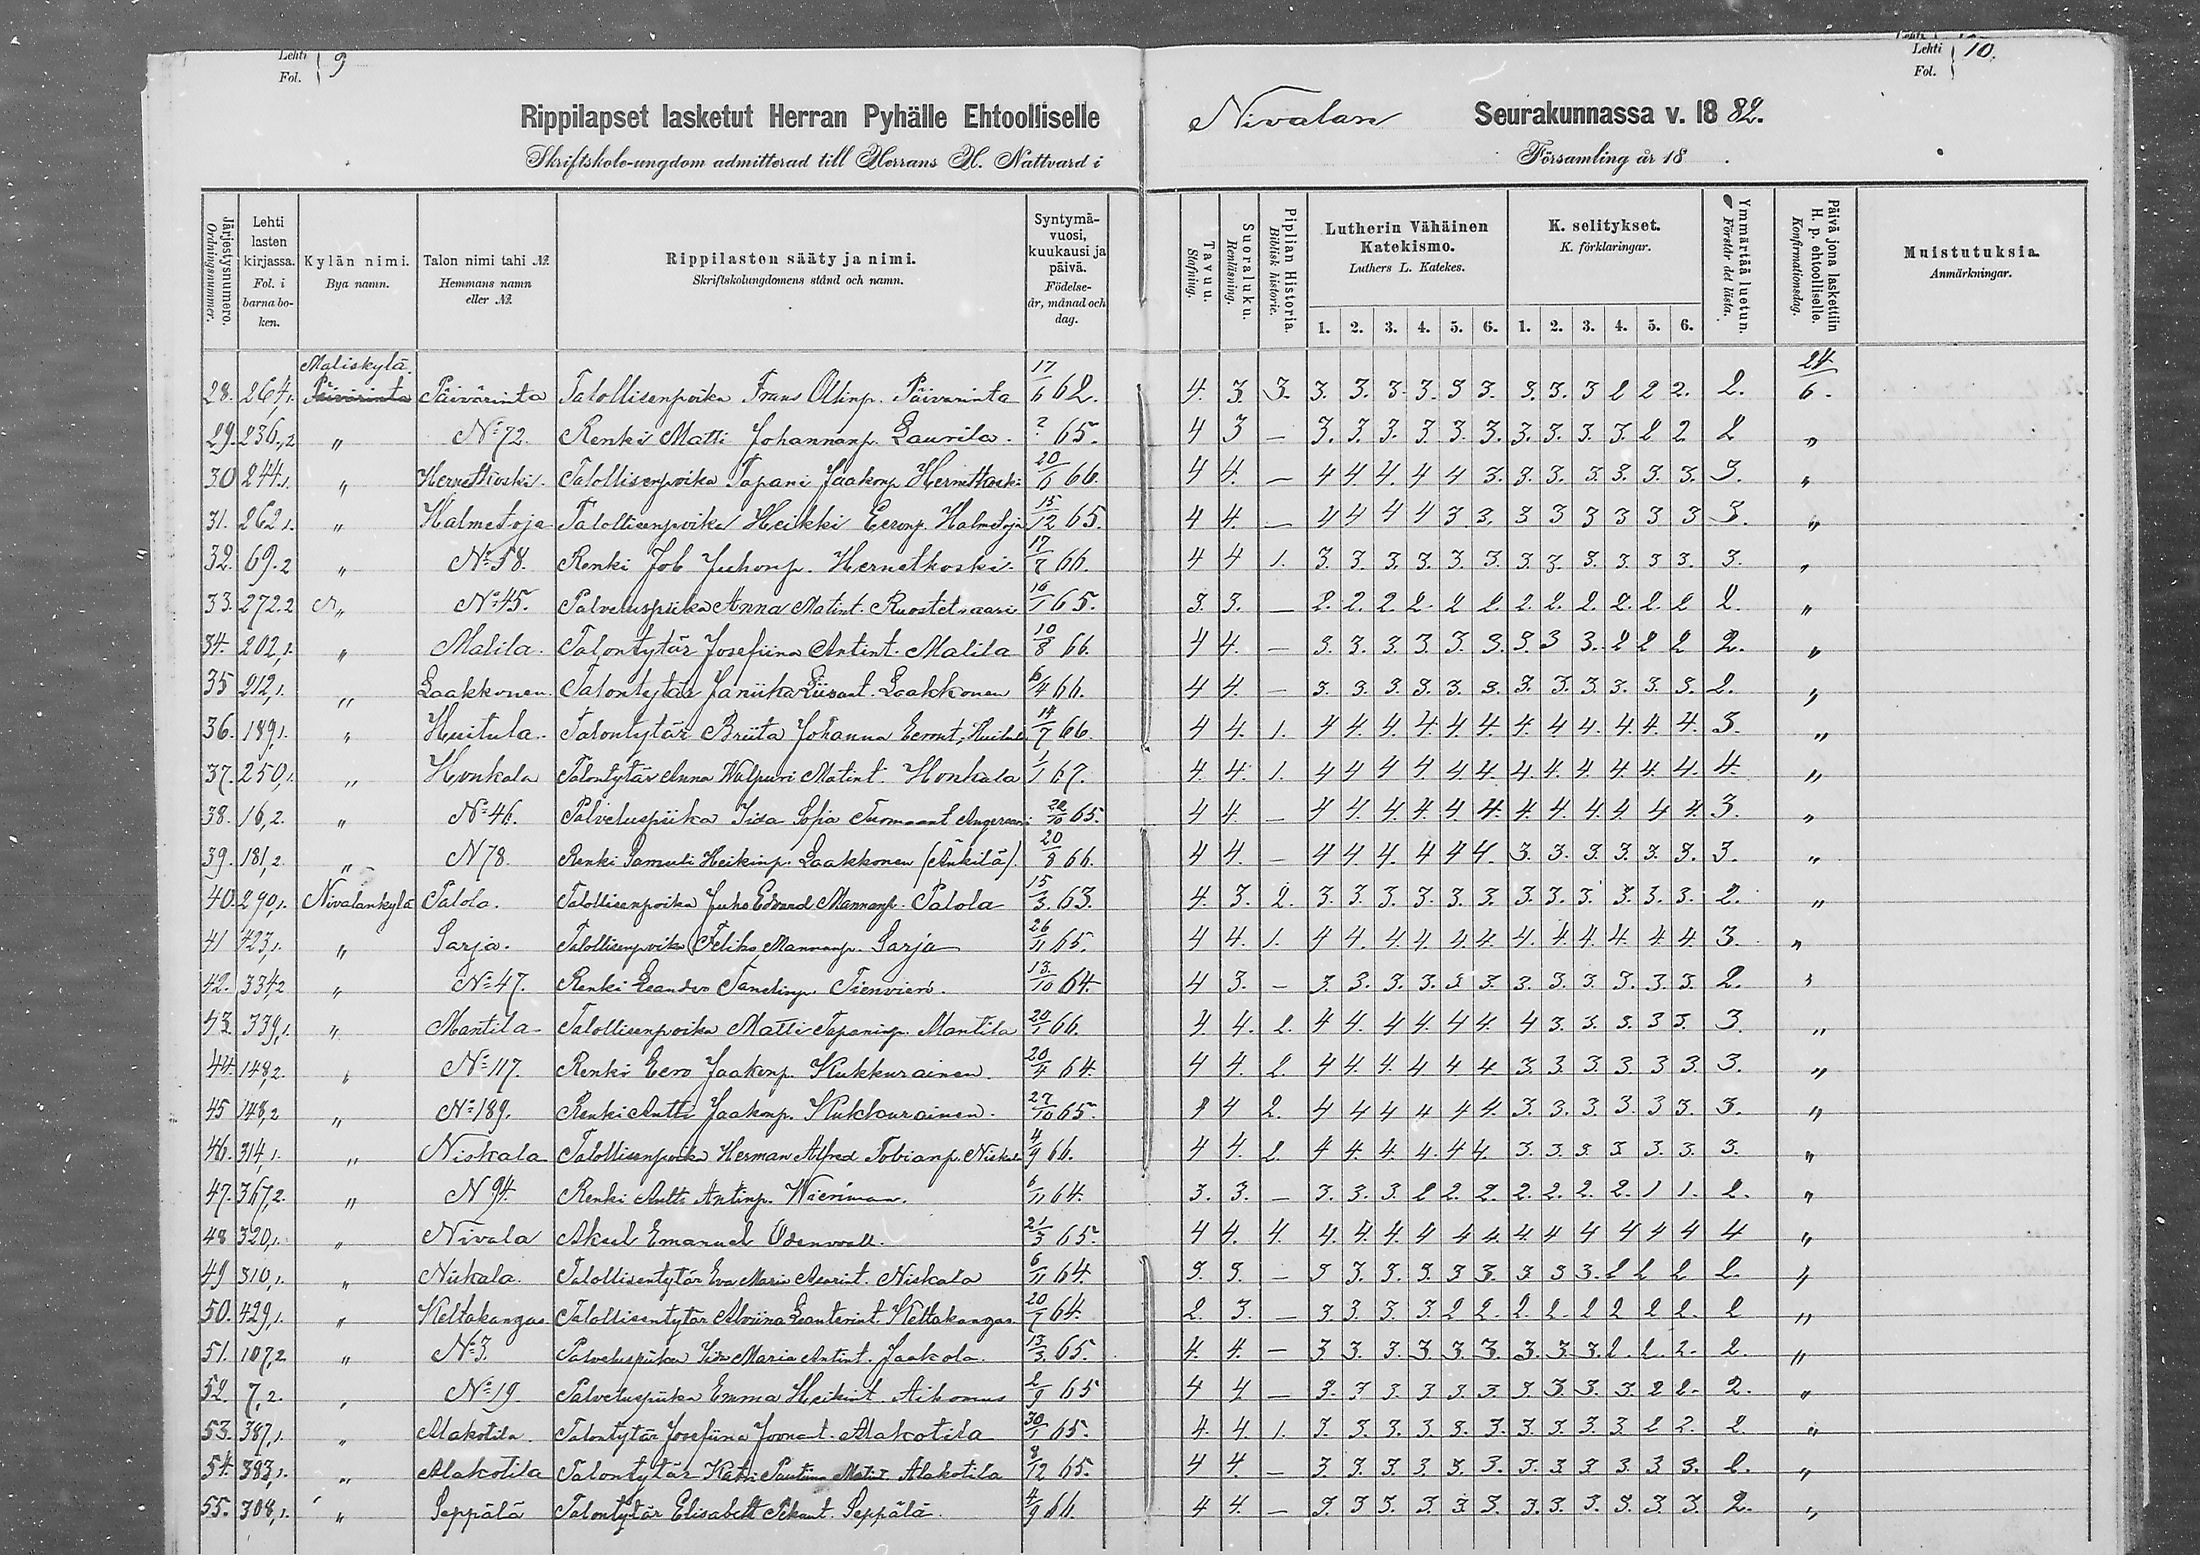 Lehti Fol. 9
Lehti Fol. 10.
Rippilapset lasketut Herran Pyhälle Ehtoolliselle Nivalan Seurakunnassa v. 1882.
Skriftskole-ungdom admitterad till Herrans H. Nattvard i Församling år 18 .
Järjestysnumero. Ordningsnummer.
Lehti lasten kirjassa. Fol. i barna boken.
Kylän nimi. Bya namn.
Talon nimi tahi №. Hemmans namn eller №.
Rippilasten sääty ja nimi. Skriftskolungdomens stånd och namn.
Syntymävuosi, kuukausi ja päivä. Födelseår, månad och dag.
Tavuu. Stafning.
Suoraluku. Renläsning.
Piplian Historia. Biblisk historie.
Lutherin Vähäinen Katekismo. Luthers L. Katekes.
K. selitykset. K. förklaringar.
Ymmärtää luetun. Förstår det lästa.
Päivä jona laskettiin H. p. ehtoolliselle. Konfirmationsdag.
Muistutuksia. Anmärkningar.
1. 2. 3. 4. 5. 6. 1. 2. 3. 4. 5. 6.
Maliskylä.
28. 264,1. Päivärinta Päivärinta Talollisenpoika Frans Ollinp. Päivärinta 17/6 62. 4. 3. 3. 3. 3. 3. 3. 3. 3. 3. 3. 3 2 2 2. 2. 24/6.
29. 236,2 " No 72. Renki Matti Johannanp. Laurila. ? 65. 4 3 — 3. 3. 3. 3. 3. 3. 3. 3. 3. 3. 2 2 2 "
30 244,1. " Hernetkoski. Talollisenpoika Tapani Jaakonp. Hernetkoski 20/6 66. 4 4. — 4 4 4. 4 4 3. 3. 3. 3. 3. 3. 3. 3. "
31. 262,1. " Halmetoja Talollisenpoika Heikki Eeronp. Halmetoja 15/12 65. 4 4. — 4 4 4 4 3 3. 3 3 3 3 3 3 3. "
32. 69.2 " No 58. Renki Job Juhonp. Hernetkoski. 17/7 66. 4 4 1. 3. 3. 3. 3. 3. 3. 3. 3. 3. 3. 3. 3. 3. "
33. 272.2 " No 45. Palveluspiika Anna Matint. Ruostetsaari 16/1 65. 3. 3. — 2. 2. 2 2. 2 2. 2. 2. 2. 2. 2. 2 2. "
34. 202,1. " Malila. Talontytär Josefiina Antint. Malila 10/8 66. 4 4. — 3. 3. 3. 3. 3. 3. 3. 3 3. 2 2 2 2. "
35 212,1. " Laakkonen. Talontytär Laakkonen 6/4 66. 4 4. — 3. 3. 3. 3. 3. 3. 3. 3. 3. 3. 3. 3. 2. "
36. 189,1. " Huitula. Talontytär Briita Johanna Eeront. Huitula 14/7 66. 4 4. 1. 4 4. 4. 4. 4. 4. 4. 4 4. 4. 4. 4. 3. "
37. 250,1. " Honkala Talontytär Anna Walpuri Matint. Honkala 1/1 67. 4. 4. 1. 4 4 4 4. 4. 4. 4. 4. 4. 4. 4. 4. 4. "
38. 16,2. " No 46. Palveluspiika Iida Sofia 22/10 65. 4 4. — 4 4. 4. 4. 4. 4. 4. 4. 4. 4 4 4. 3. "
39. 181,2. " N 78. Renki Samuli Heikinp. Laakkonen (Änkilä). 20/8 66. 4 4. — 4 4 4. 4. 4 4. 3. 3. 3. 3. 3. 3. 3. "
40. 290,1. Nivalankylä Palola. Talollisenpoika Juho Edvard Mannanp. Palola 15/3 63. 4. 3. 2. 3. 3. 3. 3. 3. 3. 3. 3. 3. 3. 3. 3. 2. "
41 423,1. " Sarja. Talollisenpoika Feliks Mannanp. Sarja 26/11 65. 4 4. 1. 4 4. 4 4. 4. 4. 4. 4. 4. 4. 4. 4 3. "
42. 334,2 " No 47. Renki Leander Tanelinp. Tienvieri. 13./10 64. 4 3. — 3. 3. 3. 3. 3. 3. 3. 3. 3. 3. 3. 3. 2. "
43. 339,1. " Mantila Talollisenpoika Matti Tapaninp. Mantila 20/1 66. 4. 4. 2. 4 4. 4. 4. 4. 4. 4 3. 3. 3. 3 3. 3. "
44. 148,2. " No 117. Renki Eero Jaakonp. Kukkurainen. 20/4 64. 4 4. 2. 4 4. 4. 4. 4 4. 3. 3. 3. 3. 3. 3. 3. "
45 148,2 " No 189. Renki Antti Jaakonp. Kukkurainen. 27/10 65. 4 4 2. 4 4 4. 4 4 4. 3. 3. 3. 3. 3 3. 3. "
46. 314,1. " Niskala Talollisenpoika Herman Alfred Tobianp. Niskala 4/9 66. 4 4. 2. 4 4. 4. 4. 4 4. 3. 3. 3. 3. 3. 3. 3. "
47. 367,2. " N 94. Renki Antti Antinp. 6/11 64. 3. 3. — 3. 3. 3 2 2. 2. 2. 2. 2. 2. 1 1. 2. "
48 320,1. " Nivala Aksel Emanuel Odenwall. 21/3 65. 4 4. 4. 4. 4. 4. 4 4. 4. 4. 4 4 4 4 4 4 "
49 310,1. " Niskala. Talollisentytär Eva Maria Niskala 6/11 64. 3. 3. — 3 3. 3. 3. 3 3. 3. 3 3. 2 2 2 2. "
50. 429,1. " Keltakangas Talollisentytär Leanterint. Keltakangas 20/7 64. 2. 3. — 3. 3 3. 3 2 2. 2. 2. 2 2 2 2. 2 "
51. 107,2 " No 3. Palveluspiika Iida Maria Antint. Jaakola. 13/3 65. 4. 4. — 3 3. 3. 3. 3. 3. 3. 3. 3. 2. 2. 2. 2. "
52. 7,2. " No 19. Palveluspiika Emma Heikint. 2/9 65 4 4 — 3. 3 3. 3 3. 3. 3. 3. 3. 3 2 2. 2. "
53. 387,1. " Alakotila. Talontytär Josefiina Joonant. Alakotila 30/1 65. 4. 4 1. 3. 3. 3. 3. 3. 3. 3. 3. 3. 3 2 2. 2. "
54. 383,1. " Alakotila Talontytär Matit. Alakotila 8/12 65. 4 4. — 3 3. 3. 3. 3. 3. 3. 3 3 3. 3 3. 2. "
55. 308,1. " Seppälä Talontytär Elisabett Seppälä. 4/9 66. 4 4. — 3. 3 3. 3. 3. 3. 3. 3. 3. 3. 3. 3. 2. "